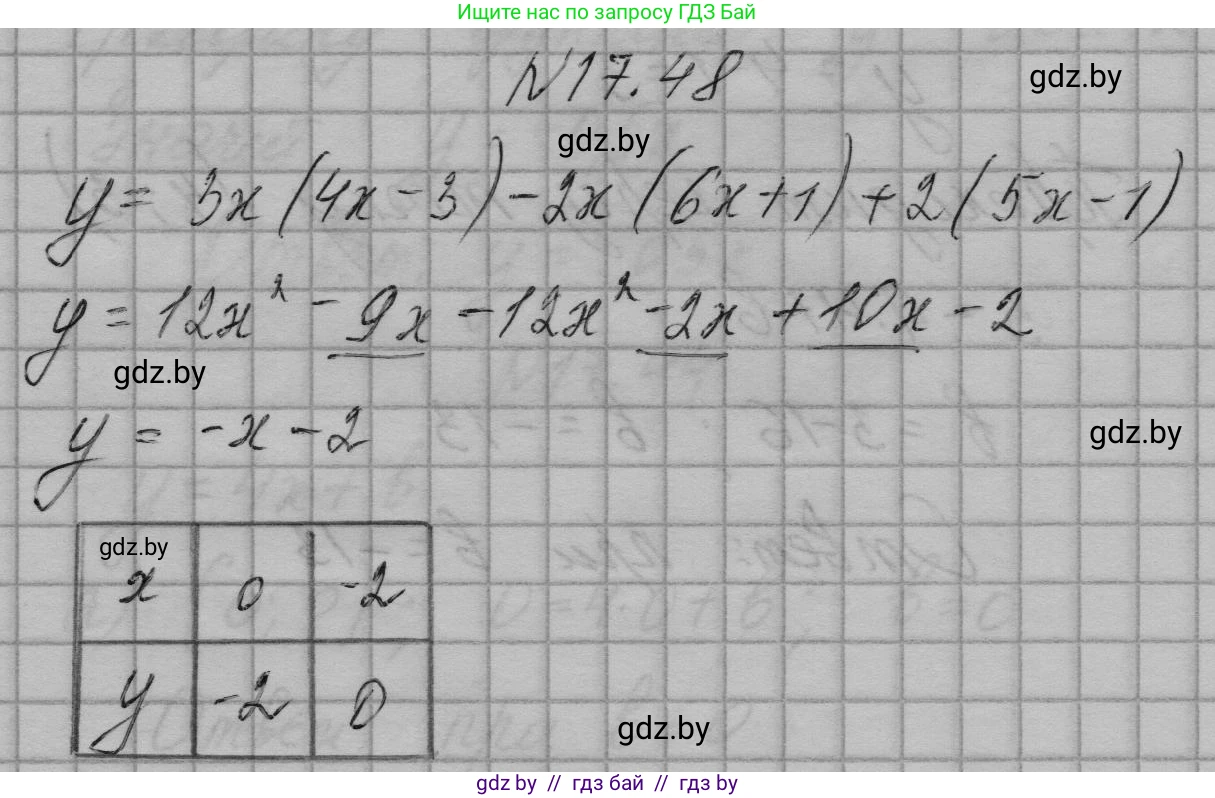 Ищите нас по запросу ГДЗ Бай
N17.48
gdz.by
gdz.by
y = 3x (4x - 3) - 2x (6x + 1) + 2 (5x - 1)
y = 12x² - 9x - 12x² - 2x + 10x - 2
gdz.by
y = -x - 2
gdz.by
gdz.by
x 0 -2
y -2 0
gdz.by
gdz.by // гдз бай // гдз by